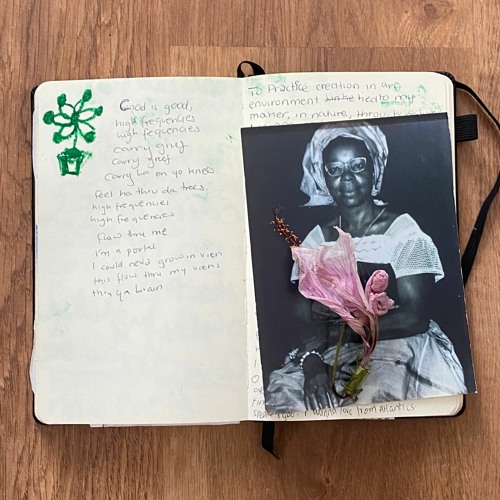 God is good,
high frequencies
high fequencies
carry grief
carry grief
Carry ha on yo knees
feel ha thru da trees.
high frequencies
high frequencies
flow thru me
i'm a portal
I could neva grow in vien
this flow thru my viens
thru ya brain
To Practice creation in any
environment tied to my
maker, in nature, throu
I wanna love from Atlantics